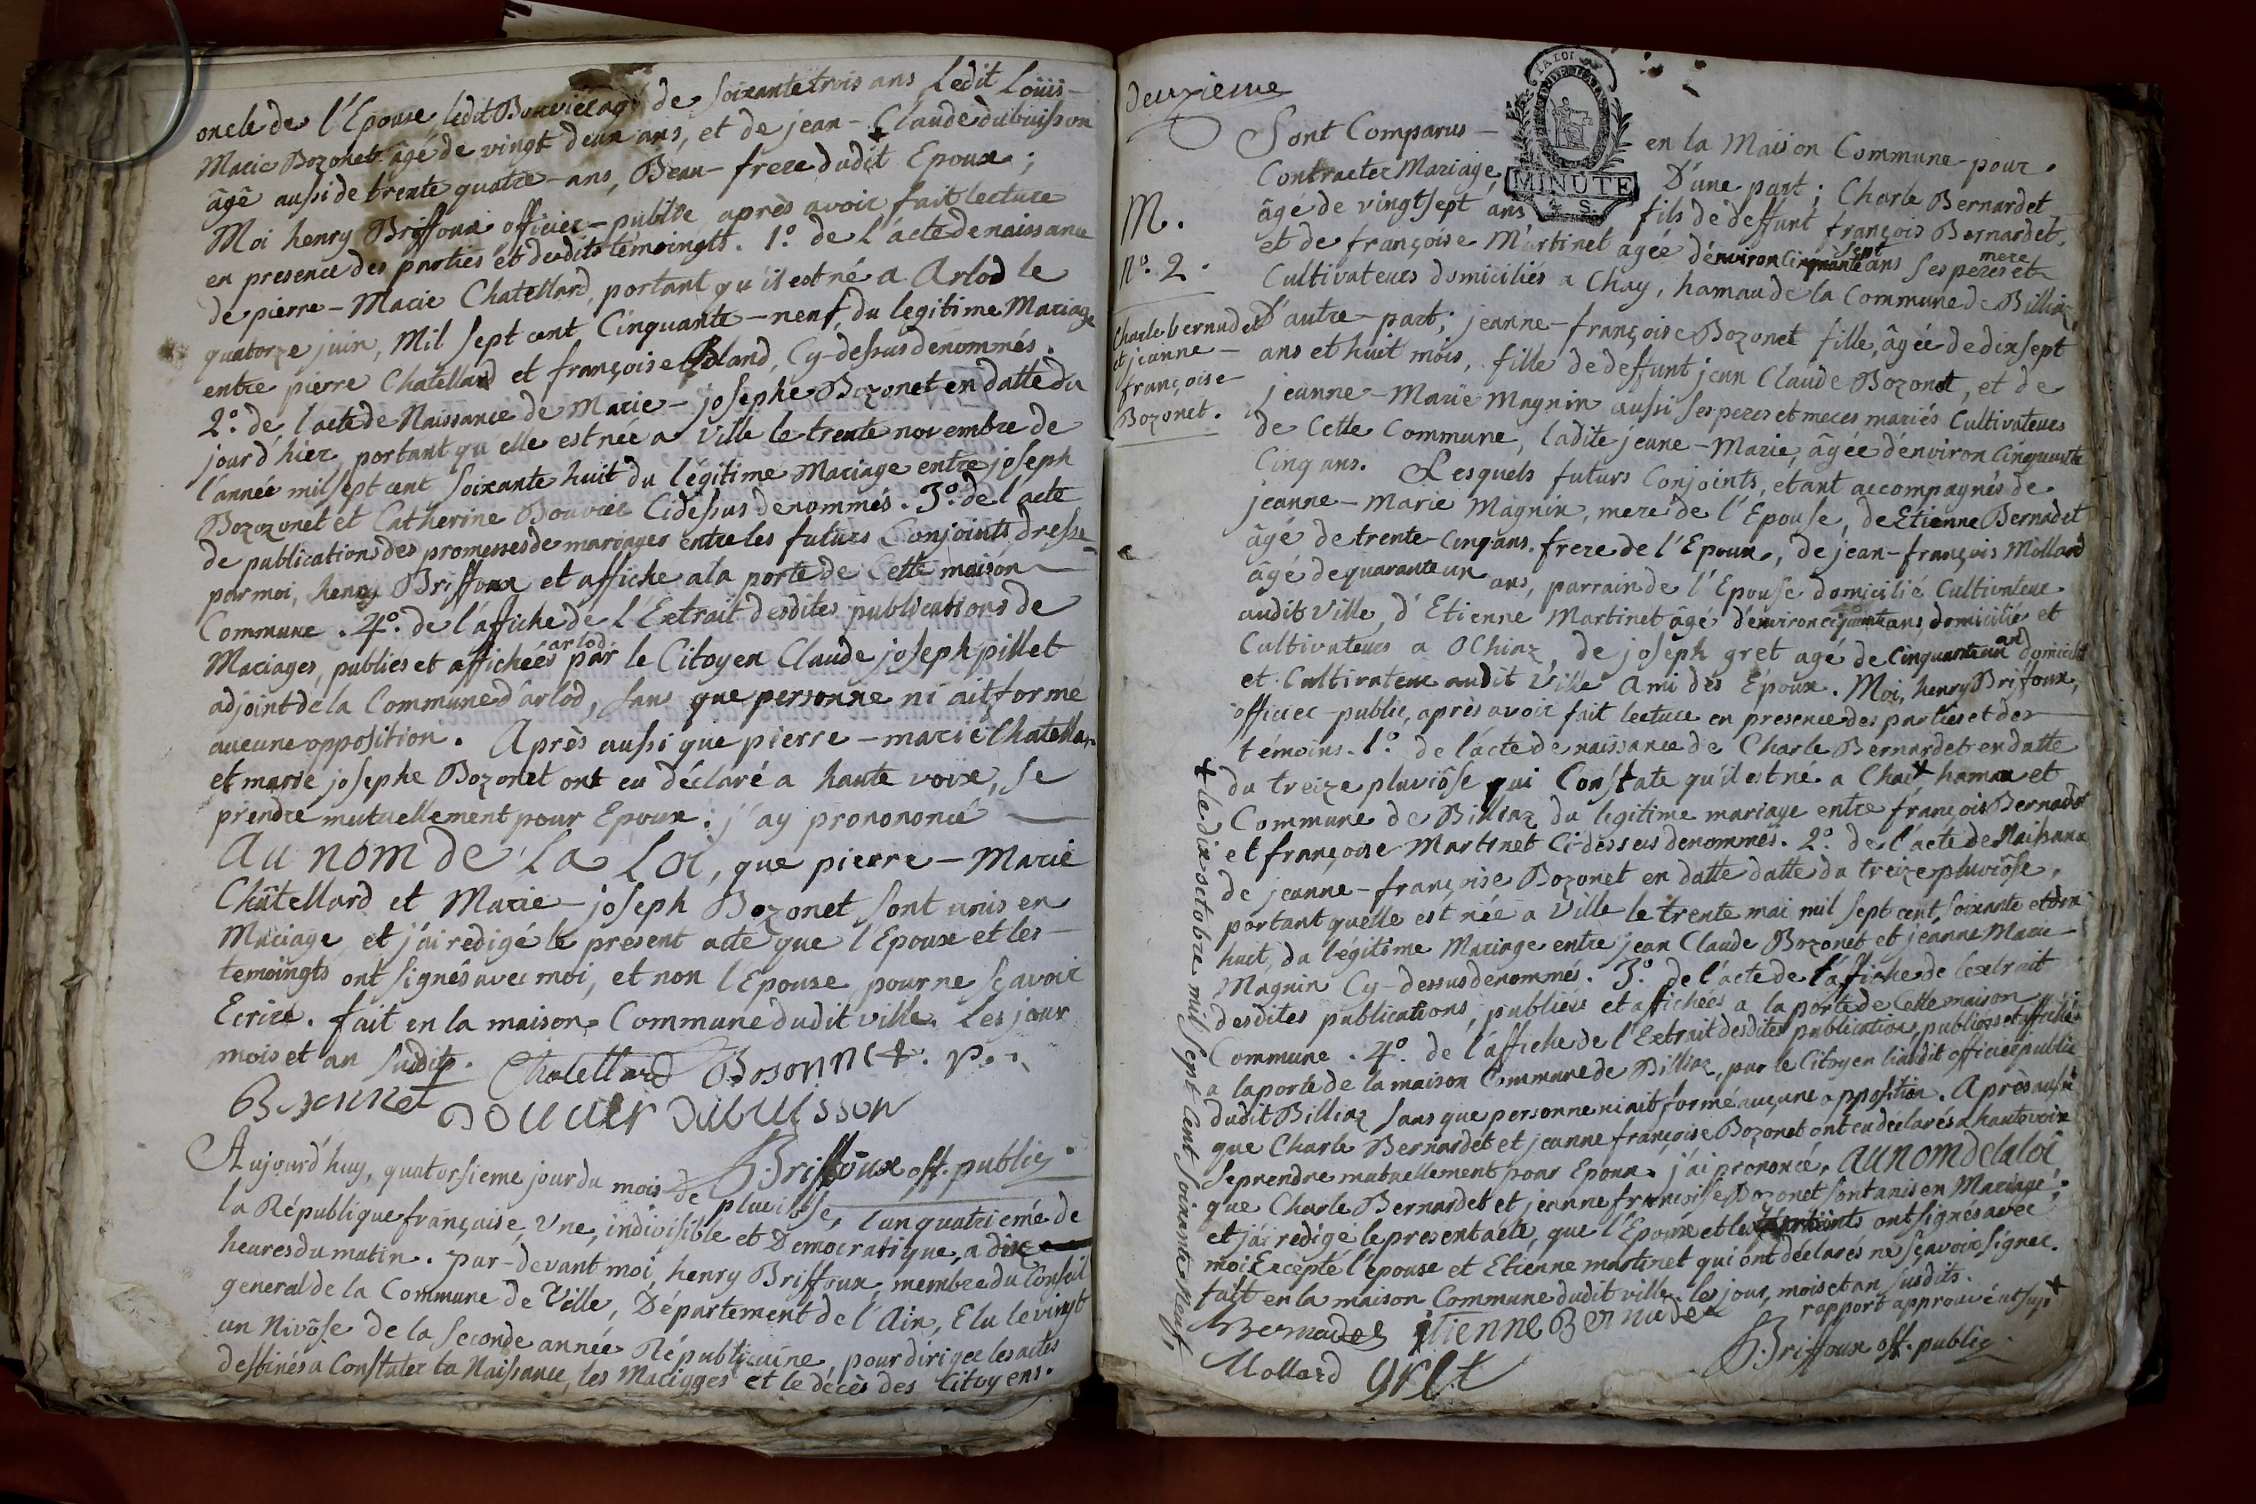 oncle de l'Epouse ledit Bouvier agé de soixante trois ans Ledit Loüis-
Marie Bozonet âgé de vingt deux ans, et de jean-Claude dubuisson
âgé aussi de trente quatre-ans, Beau-frere dudit Epoux ;
Moi henry Briffoux officier-public après avoir fait lecture
en presence des parties et desdits témoingts. 1º. de l'acte de naissance
de pierre-Marie Chatellard, portant qu'il est né a Arlod le
quatorze juin, Mil sept cent Cinquante-neuf, du legitime Mariage
entre pierre Chatellard et françoise Eland, Cy-dessus denommés.
2º. de l'acte de Naissance de Marie-josephe Bozonet en datte du
jourd'hier, portant qu'elle est née a Ville le trente novembre de
l'année mil sept cent soixante huit du légitime Mariage entre joseph
Bozozonet et Catherine Bouvier Cidessus denommés. 3º. de l'acte
de publication des promesses de mariages entre les futurs Conjoints, dressé
par moi, henry Briffoux et affiche a la porte de Cette maison
Commune. 4º. de l'affiche de l'Extrait desdites publications de
Mariages, publies et affichées arlod par le Citoyen Claude joseph pillet
adjoint de la Commune d'arlod, sans que personne ni ait formé
aucune opposition. Après aussi que pierre-marie Chatellar
et marie josephe Bozonet ont eu déclaré a haute voix, se
prendre mutuellement pour Epoux ; j'ay pronononcé
Au nom de La Loi, que pierre-Marie
Châtellard et Marie-joseph Bozonet sont unis en
Mariage et j'ai redigé le présent acte que l'Epoux et les
temoingts ont signés avec moi, et non l'Epouse pour ne sçavoir
Ecrire. fait en la maison Commune dudit ville. Les jour
mois et an susdits. Chatellard Bosonnet.
Bozonnet bouvier dubuisson
H. Briffoux off. public.
Aujourd'huy, quatorsieme jour du mois de pluviôse, l'an quatrieme de
la République française, Une, indivisible et Democratique, a dix
heures du matin. par-devant moi, henry Briffoux, membre du Conseil
general de la Commune de Ville, Département de l'Ain, Elu le vingt
un Nivôse de la seconde année Républicaine, pour diriger les actes
destinés a Constater la Naissance, les Mariages et le décès des Citoyens.
deuxieme
LA LOI
MINUTE
4 S.
Sont Comparus- en la Maison Commune pour
Contracter Mariage, D'une part ; Charle Bernardet
âgé de vingt sept ans fils de deffunt françois Bernardet,
et de françoise Martinet agée d'environ Cinquante sept ans ses peres et mere
Cultivateurs domiciliés a Chay, hamau de la Commune de Billiaz,
M.
Nº. 2.
Charle bernadet
et jeanne-
françoise
Bozonet.
D'autre-part ; jeanne-françoise Bozonet fille, âgée de dix sept
ans et huit mois, fille de deffunt jean Claude Bozonet, et de
jeanne-Marie Magnin aussi ses peres et meres mariés Cultivateurs
de Cette Commune, ladite jeanne-Marie, âgée d'environ Cinquante
Cinq ans. Lesquels futurs Conjoints, etant accompagnés de
jeanne-Marie Magnin, mere de l'Epouse, de Etienne Bernadet
âgé de trente-Cinq ans. frere de l'Epoux, de jean-françois Mollard
âgé de quarante un ans, parrain de l'Epouse domicilié Cultivateur
audit Ville, d'Etienne Martinet âgé d'environ cinquante ans domicilié et
Cultivateur a Ochiaz, de joseph gret agé de Cinquante un an domicilié
et Cultivateur audit Ville Ami des Epoux. Moi, henry Briffoux,
officier-public, après avoir fait lecture en presence des parties et des
témoins. 1º. de l'acte de naissance de Charle Bernardet en datte
du treize pluviôse qui Constate qu'il est né a Chaix + hamau et
Commune de Billiaz du legitime mariage entre françois Bernadet
et françoise Martinet Ci-dessus denommés. 2º. de l'acte de Naissance
de jeanne-françoise Bozonet en datte datte du treize pluviôse,
portant quelle est née a Ville le trente mai mil sept cent soixante et dix
huit, du légitime Mariage entre jean Claude Bozonet et jeanne Marie-
Magnin Cy-dessus denommés. 3º. de l'acte de l'affiche de lextrait
desdites publications, publiées et affichées a la porte de Cette maison
Commune. 4º. de l'affiche de l'Extrait desdites publications, publiées et affichées
a la porte de la maison Commune de Billiaz, par le Citoyen liaudit officier public
dudit Billiaz sans que personne ni ait formé aucune opposition. Après aussi
que Charle Bernardet et jeanne françoise Bozonet ont eu déclarés a haute voix
se prendre mutuellement pour Epoux. j'ai prononcé, AU NOM de la loi
que Charle Bernardet et jeanne françoise Bozonet sont unis en Mariage ;
et j'ai redigé le present acte, que l'Epoux et les ont signés avec
moi Excepté l'epouse et Etienne martinet qui ont déclarés ne sçavoir signer.
fait en la maison Commune dudit ville les jour, mois et an susdits.
rapport approuvé +
Bernadet Etienne Bernadet
Mollard gret
H. Briffoux off. public.
+ le dix octobre mil sept Cent soixante neuf,